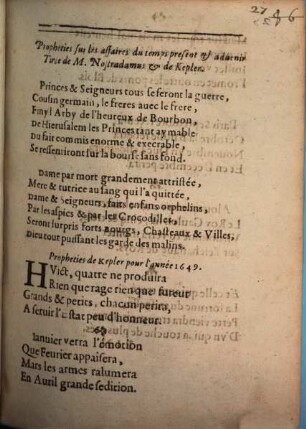 27 6
Propheties sur les affaires du temps present & aduenir
Tiree de M. Nostradamus & de Kepler.
Princes & Seigneurs tous se feront la guerre,
Cousin germain, le freres auec le frere,
Finyl Arby de l'heureux de Bourbon,
De Hierusalem les Princes tant aymable
Du fait commis enorme & execrable,
Se ressentiront sur la bourse sans fond.
Dame par mort grandement attristée,
Mere & tutrice au sang qui l'a quittée,
Dame & Seigneurs, faits enfans orphelins,
Par les aspics & par les Crocodilles,
Seront surpris forts bourgs, Chasteaux & Villes,
Dieu tout puissant les garde des malins.
Propheties de Kepler pour l'année 1649.
HVict, quatre ne produira
Rien que rage rien que fureur
Grands & petits, chacun perira,
A seruir l'estat peu d'honneur.
Ianuier verra l'émotion
Que Feurier appaisera,
Mars les armes ralumera
En Auril grande sedition.